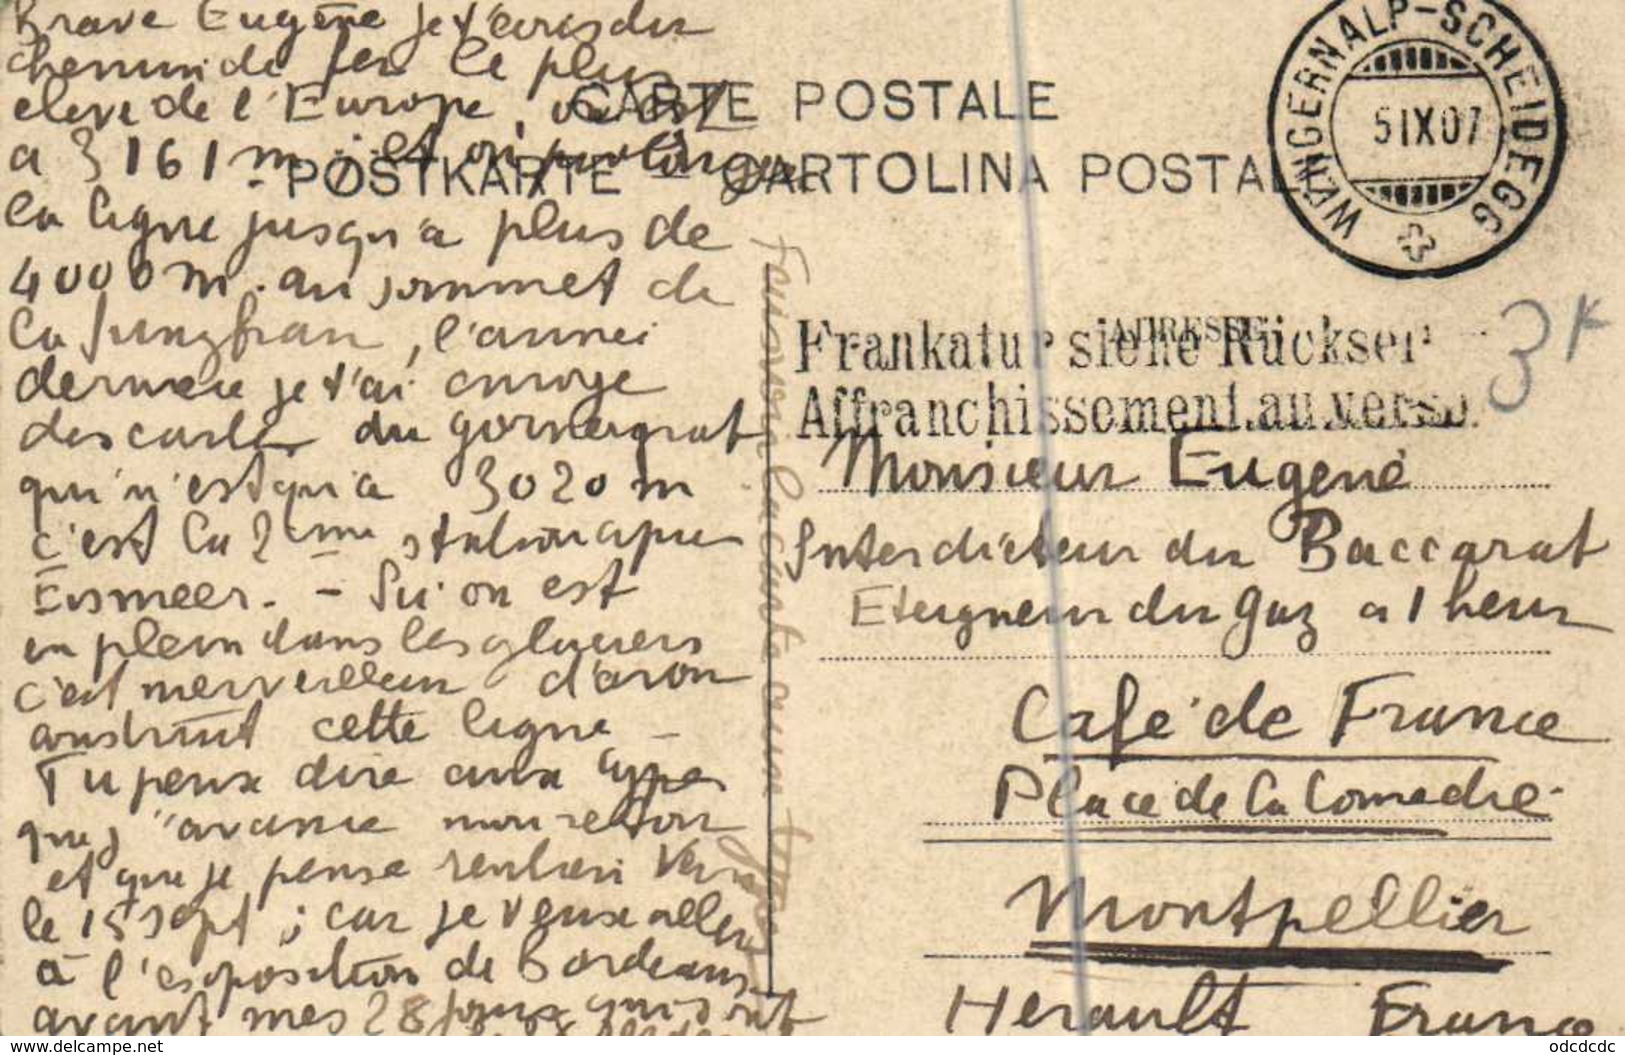 Brave Eugène je t'écris du
chemin de fer le plus
eleve de l'Europe,
a 3161 m et on prolonge
la ligne jusqu'a plus de
4000 m. au sommet de
la Jungfrau, l'annei
derniere je t'ai envoye
des cartes du gornergrat
qui n'est qu'a 3020 m
c'est la 2eme station apres
Eismeer. - Ici on est
en plein dans les glaciers
c'est merveilleux d'avoir
construit cette ligne -
Tu peux dire aux types
que j'avance mon retour
et que je pense rentrer vers
le 15 sept; car je veux aller
à l'exposition de Bordeaux
avant mes 28 jours qui sont
CARTE POSTALE
POSTKARTE - CARTOLINA POSTALE
WENGERNALP-SCHEIDEGG
5 IX 07
3 k
ADRESSE
Frankatur siehe Rückseite
Affranchissement au verso.
Monsieur Eugene
Interdicteur du Baccarat
Eteigneur du gaz a 1 heur
Café de France
Place de la Comedie
Montpellier
Herault France
www.delcampe.net
odcdcdc